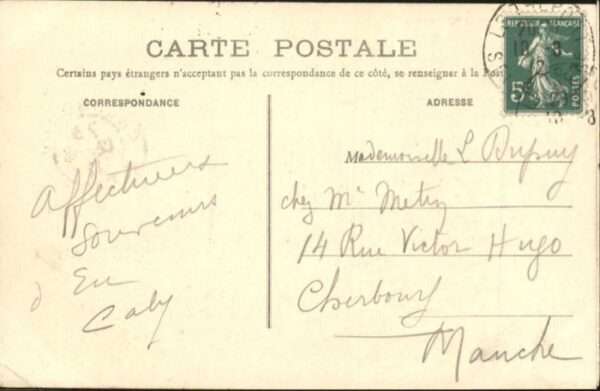 CARTE POSTALE
Certains pays étrangers n'acceptant pas la correspondance de ce côté, se renseigner à la Poste
CORRESPONDANCE
ADRESSE
REPUBLIQUE FRANÇAISE
5c
POSTES
Affectueux
souvenirs
d'Eu
Caby
Mademoiselle L Dupuy
chez Mr
14 Rue Victor Hugo
Cherbourg
Manche